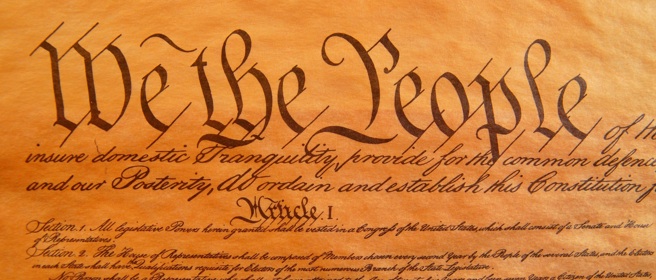 We the People of the
insure domestic Tranquility, provide for the common defence
and our Posterity, do ordain and establish this Constitution f
Article. I.
Section. 1. All legislative Powers herein granted shall be vested in a Congress of the United States, which shall consist of a Senate and House
of Representatives.
Section. 2. The House of Representatives shall be composed of Members chosen every second Year by the People of the several States, and the Electors
in each State shall have Qualifications requisite for Electors of the most numerous Branch of the State Legislature.
No Person shall be a Representative